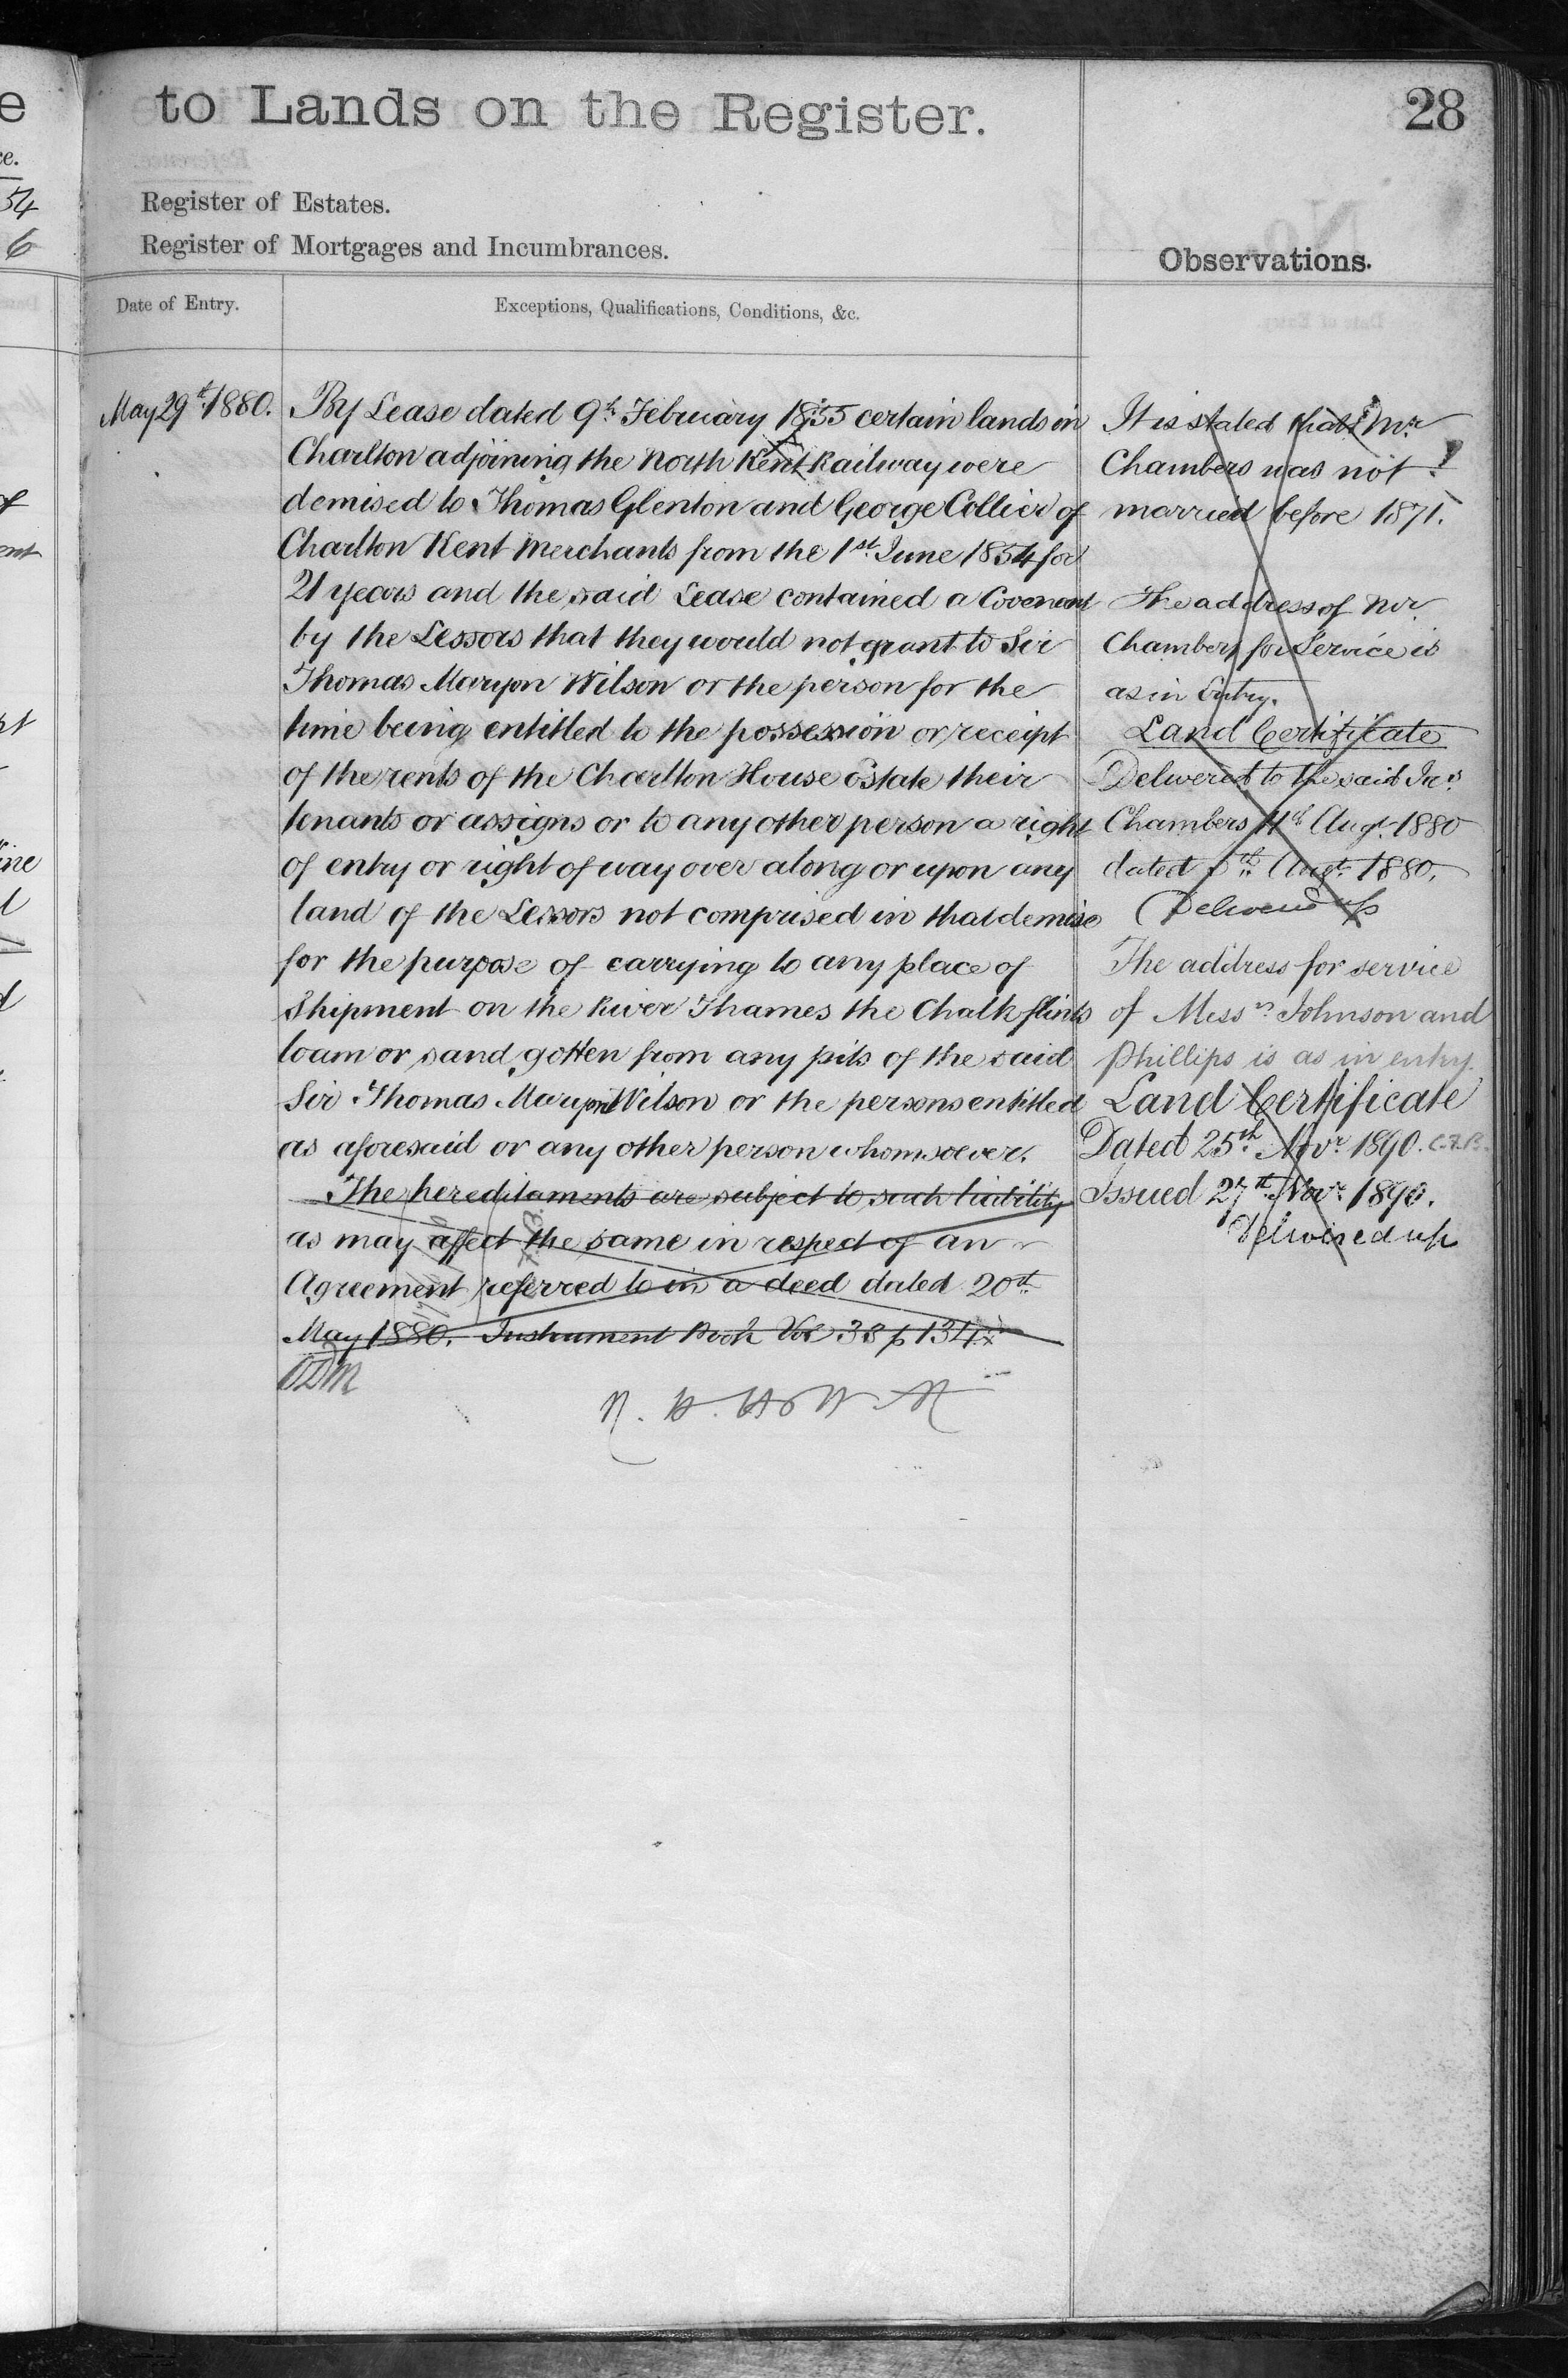 to Lands on the Register.
28
Register of Estates.
Register of Mortgages and Incumbrances.
Observations.
Date of Entry.
Exceptions, Qualifications, Conditions, &c.
May 29th 1880.
By Lease dated 9th February 1855 certain lands in
Charlton adjoining the North Kent Railway were
demised to Thomas Glenton and George Collier of
Charlton Kent Merchants from the 1st June 1854 for
21 years and the said Lease contained a Covenant
by the Lessors that they would not grant to Sir
Thomas Maryon Wilson or the person for the
time being entitled to the possession or receipt
of the rents of the Charlton House Estate their
tenants or assigns or to any other person a right
of entry or right of way over along or upon any
land of the Lessors not comprised in that demise
for the purpose of carrying to any place of
Shipment on the River Thames the Chalk flints
loam or sand gotten from any pits of the said
Sir Thomas Maryon Wilson or the persons entitled
as aforesaid or any other person whomsoever.
The hereditaments are subject to such liability
as may affect the same in respect of an
Agreement referred to in a deed dated 20th
May 1880. Instrument Book Vol 38 p 134
It is stated that Mr
Chambers was not
married before 1871.
The address of Mr
Chambers for Service is
as in Entry.
Land Certificate
Delivered to the said
Chambers Augt. 1880
dated Augt. 1880.
Delivered up
The address for service
of Messrs Johnson and
Phillips is as in entry
Land Certificate
Dated 25th Novr 1890.
Issued 27th Novr 1890.
Delivered up